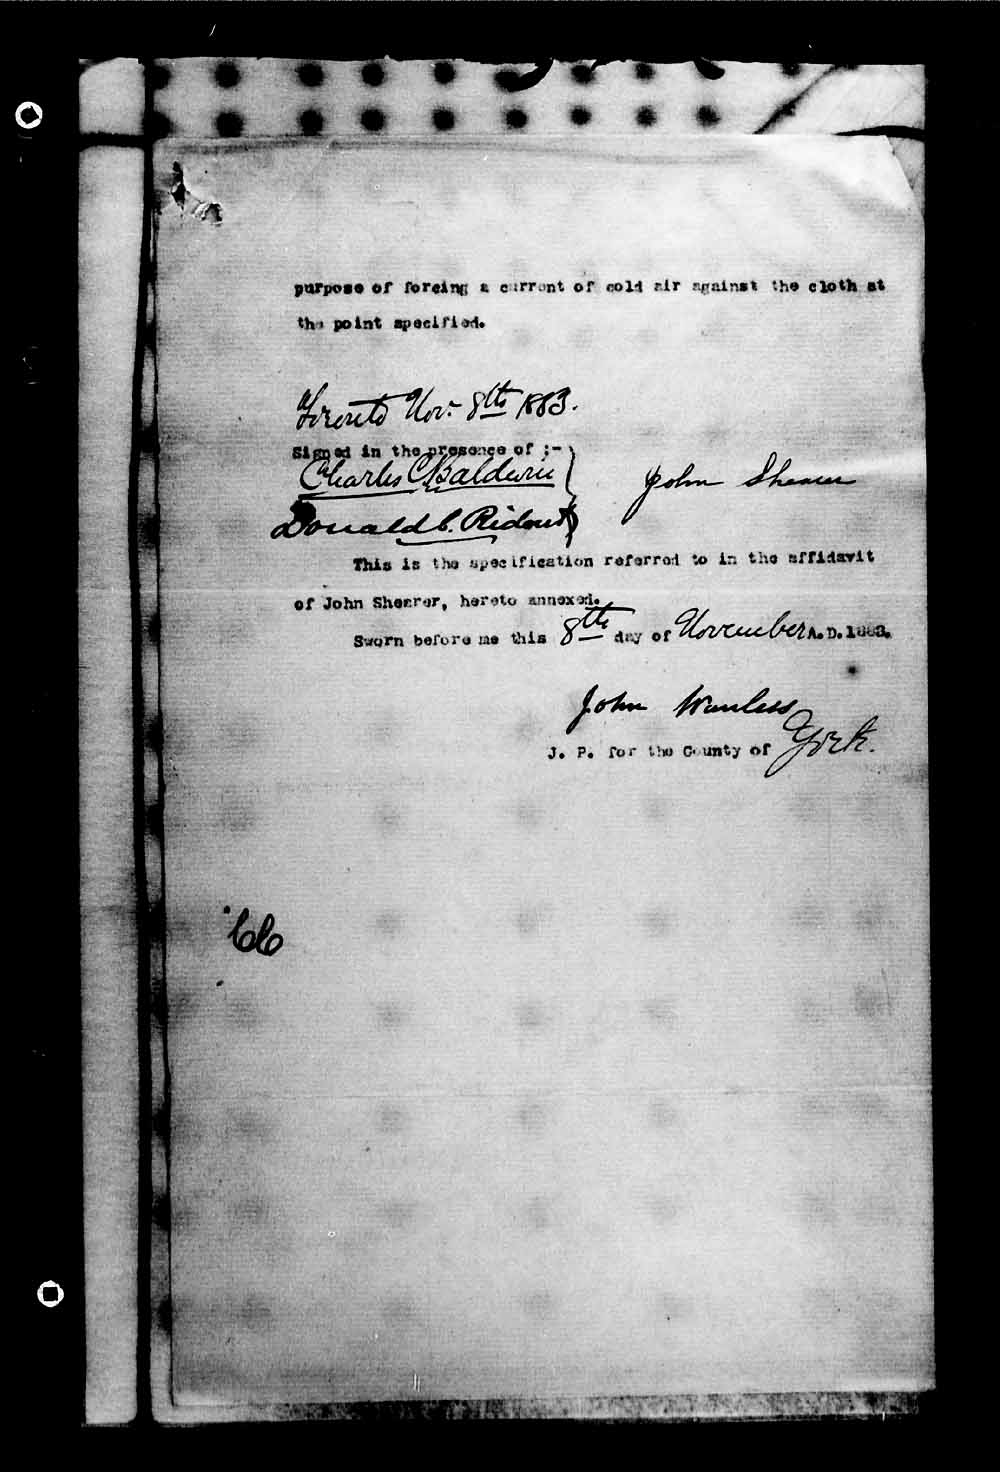 purpose of forcing a current of cold air against the cloth at
the point specified.
Toronto Nov. 8th 1883.
Signed in the presence of :-
Charles C Baldwin
John Shearer
Donald C. Ridout
This is the specification referred to in the affidavit
of John Shearer, hereto annexed.
Sworn before me this 8th day of November A.D. 1883.
John Wanless
J. P. for the County of York.